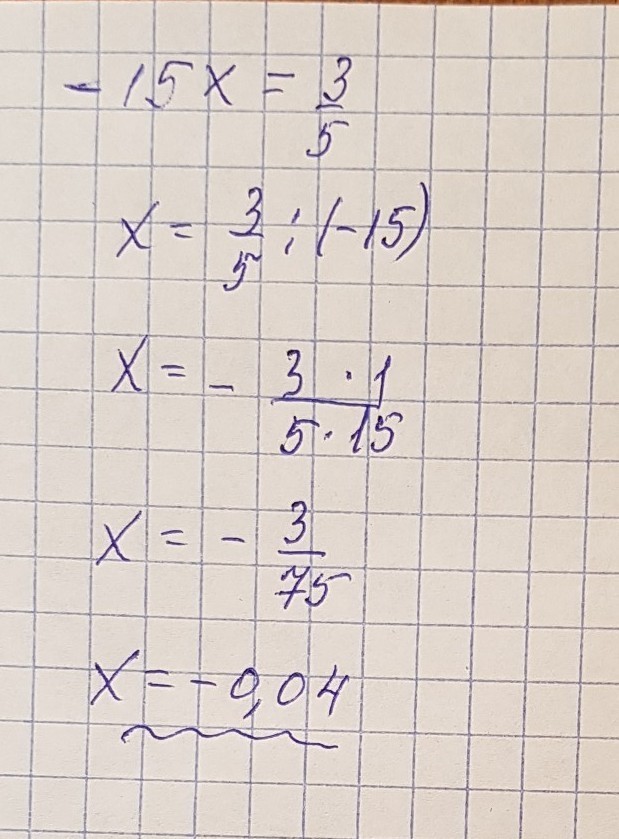 - 15x = 3/5
x = 3/5 : (-15)
x = - 3 · 1 / 5 · 15
x = - 3/75
x = - 0,04